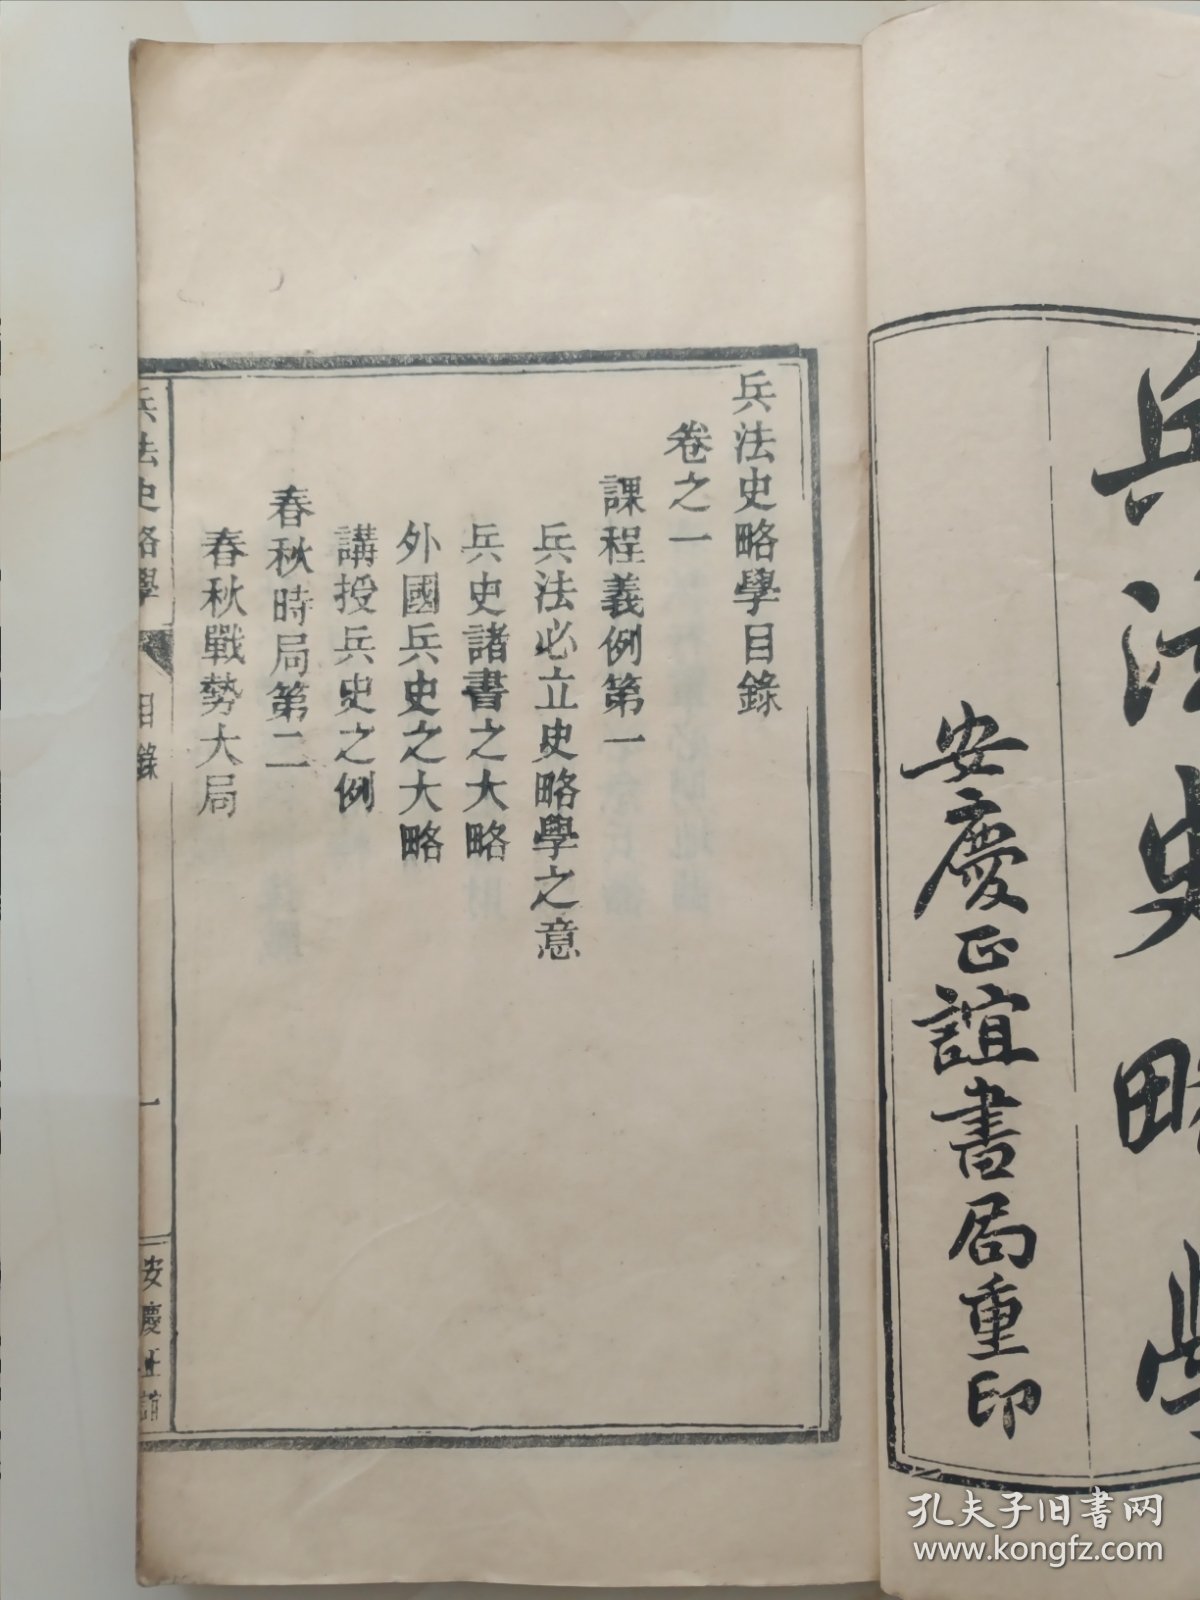 兵法史略學
安慶正誼書局重印
兵法史略學目錄
卷之一
課程義例第一
兵法必立史略學之意
兵史諸書之大略
外國兵史之大略
講授兵史之例
春秋時局第二
春秋戰勢大局
兵法史略學
目錄
一
安慶正誼
孔夫子旧书网
www.kongfz.com